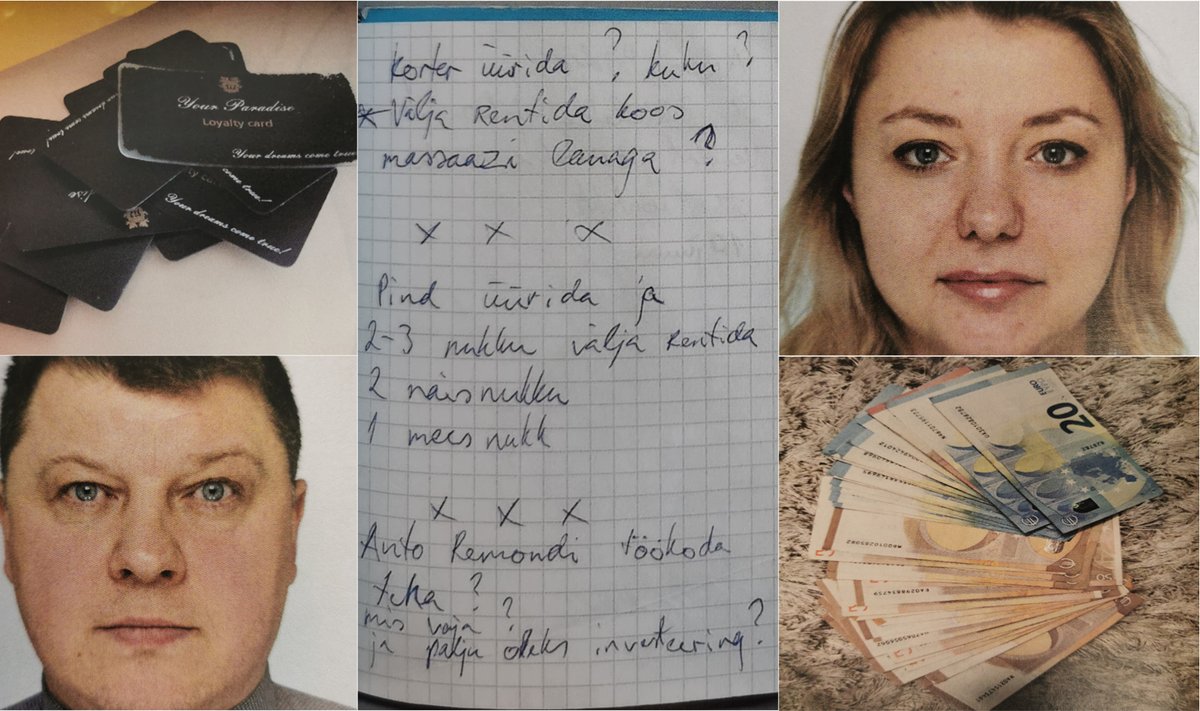 Your Paradise
Loyalty card
Your dreams come true!
come true!
Your dreams come true!
Korter üürida ? kuhu ?
* Välja rentida koos
massaazi lauaga ?
x x x
Pind üürida ja
2-3 nukku välja rentida
2 naisnukku
1 mees nukk
x x x
Auto Remondi töökoda
teha ?
mis vaja ?
ja palju oleks investeering ?
20
EURO
50